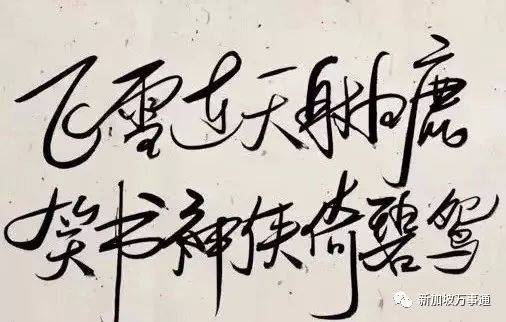 飞雪连天射白鹿
笑书神侠倚碧鸳
新加坡万事通